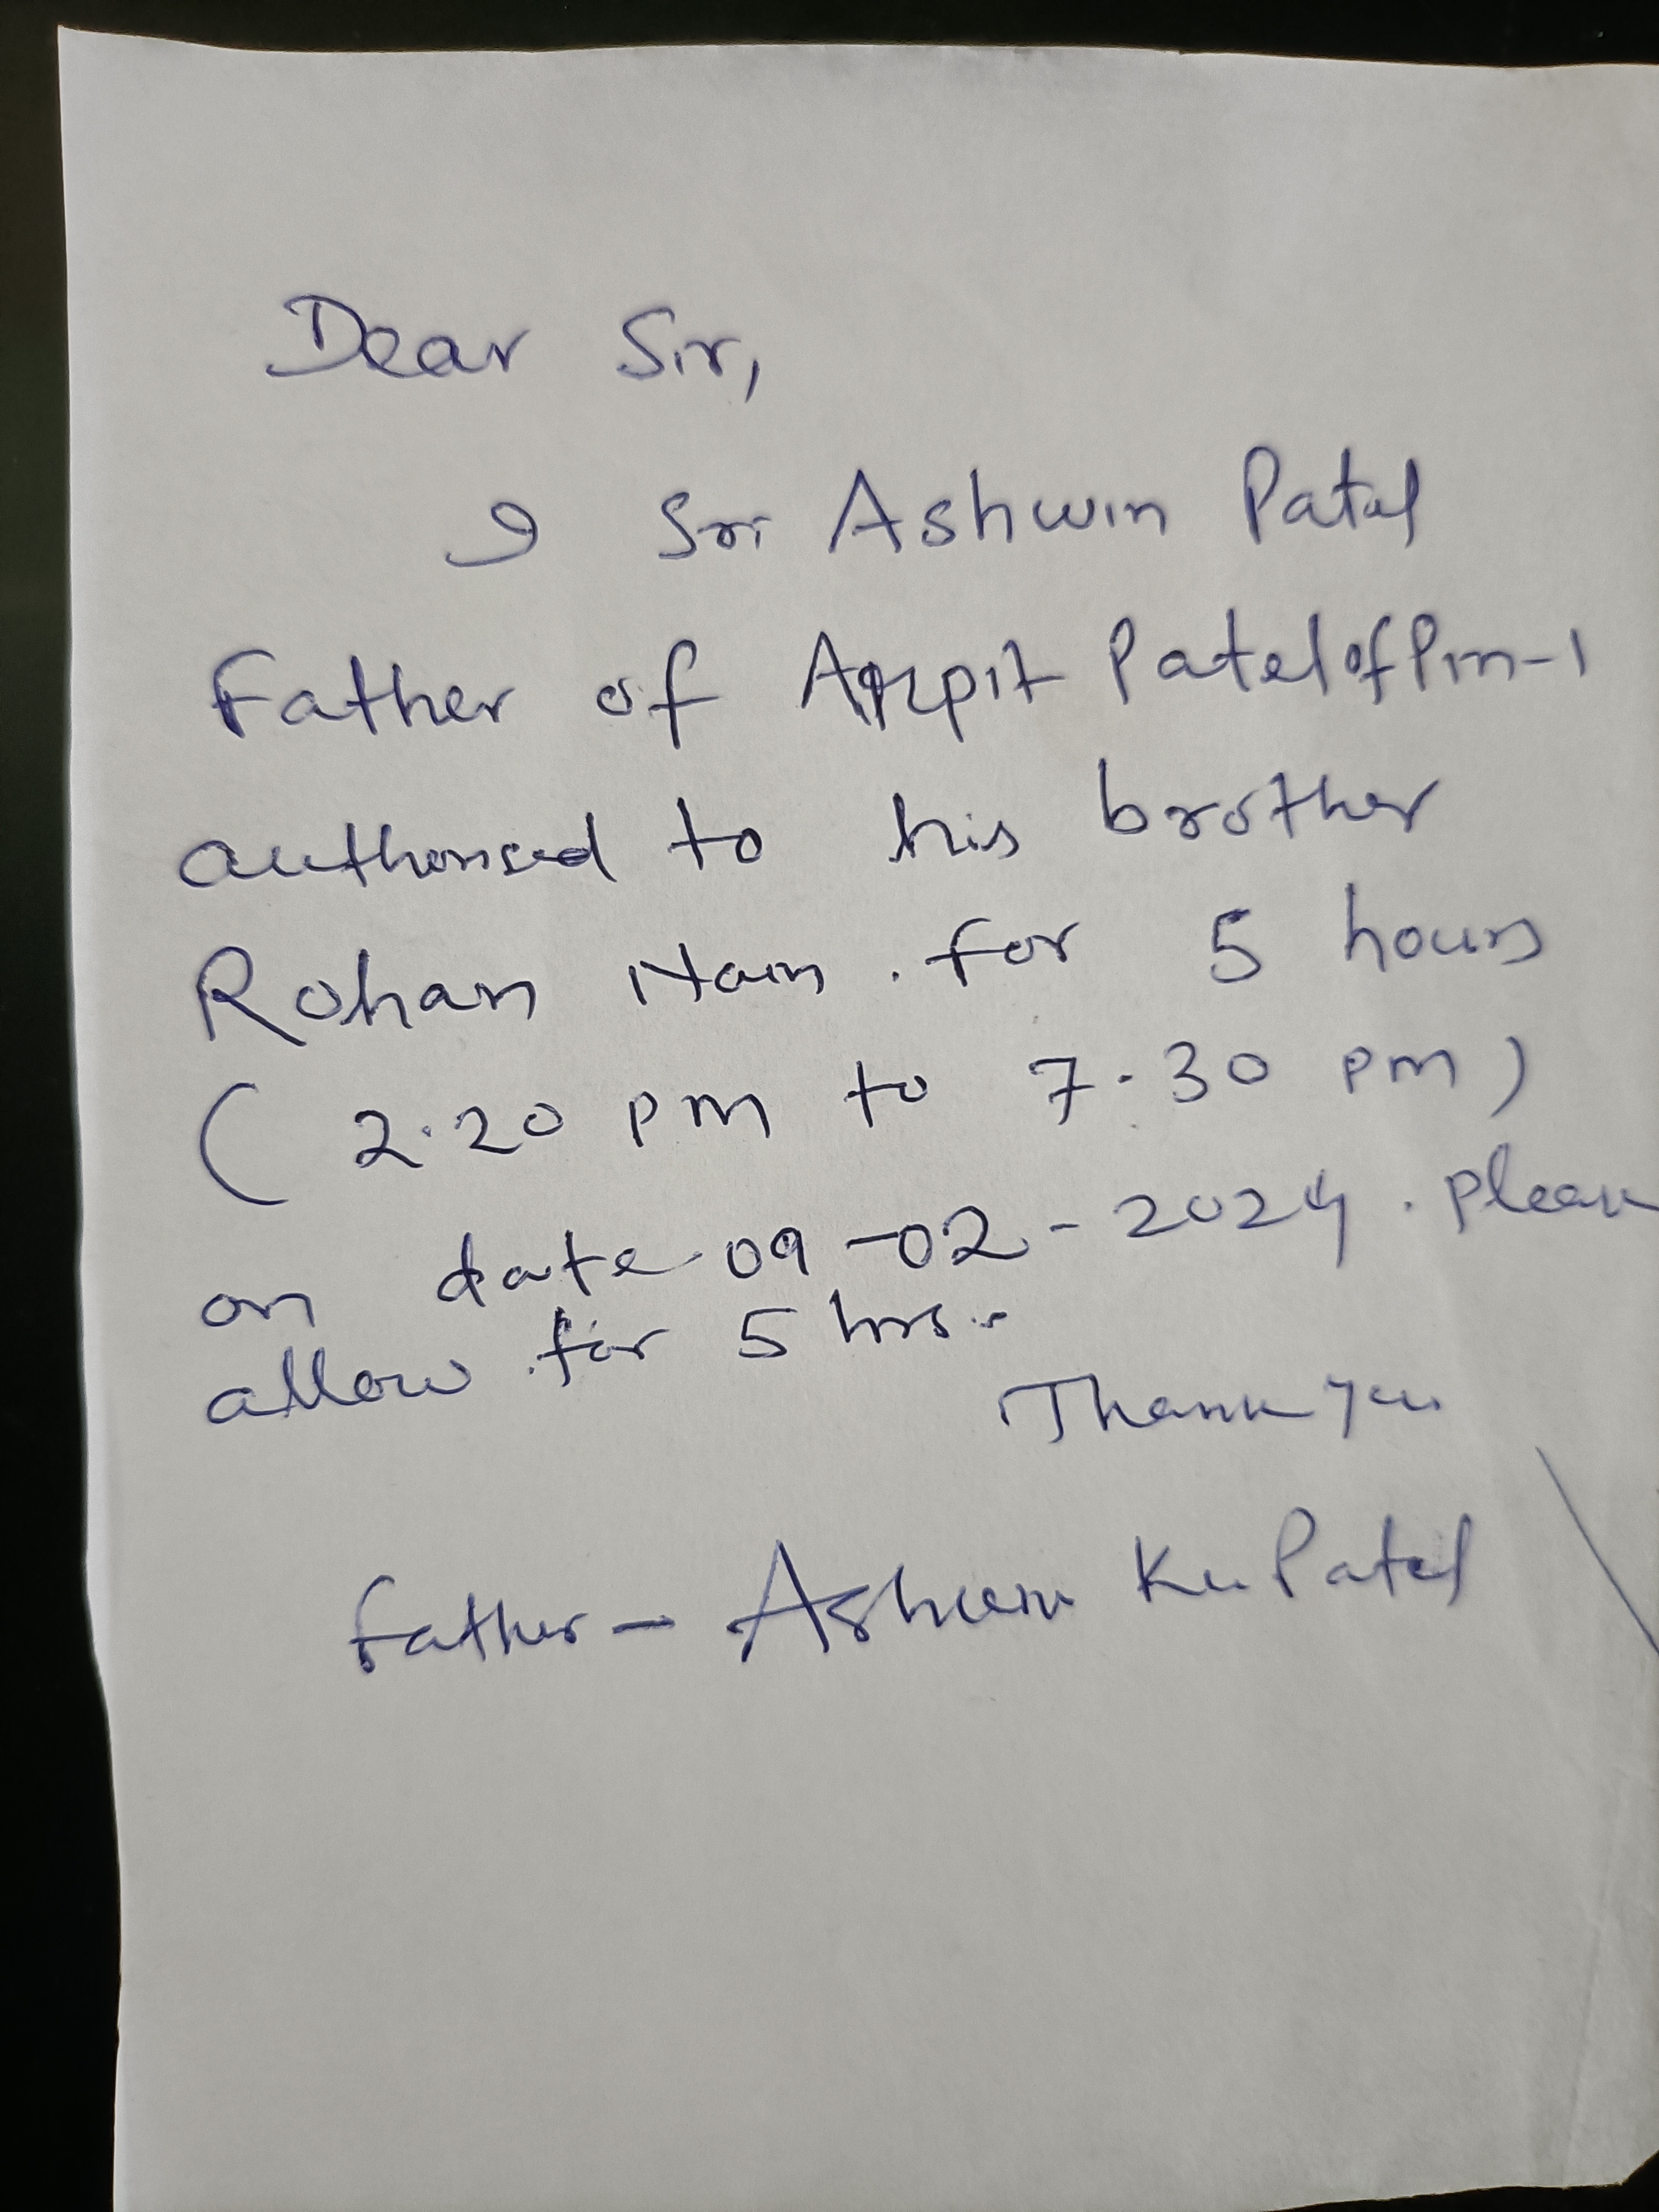 Dear Sir,
I Sri Ashwin Patel
Father of Arpit Patel of Pin-1
authorised to his brother
Rohan Nain. for 5 hours
( 2.20 pm to 7.30 pm )
on date 09-02-2024. please
allow for 5 hrs.
Thank you
Father - Ashwin Ku Patel